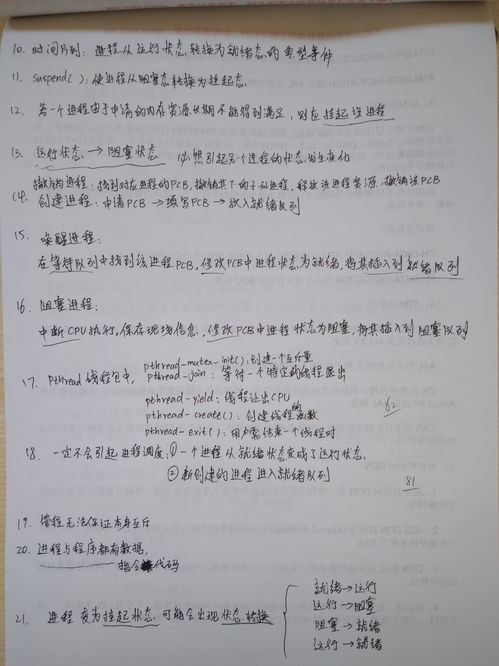 10. 时间片到：进程从运行状态转换为就绪态的典型事件
11. suspend()：使进程从阻塞态转换为挂起态.
12. 若一个进程由于申请的内存资源长期不能得到满足，则应挂起该进程
13. 运行状态→阻塞状态 必然引起另一个进程的状态发生变化
撤销进程：找到对应进程的PCB，撤销其下的子孙进程，释放该进程资源，撤销该PCB
14. 创建进程：申请PCB→填写PCB→放入就绪队列
15. 唤醒进程：
在等待队列中找到该进程PCB，修改PCB中进程状态为就绪，将其插入到就绪队列
16. 阻塞进程：
中断CPU执行，保存现场信息，修改PCB中进程状态为阻塞，将其插入到阻塞队列
pthread-mutex-init()：创建一个互斥量
17. Pthread 线程包中，pthread-join：等待一个特定的线程退出
pthread-yield：线程让出CPU
pthread-create()：创建线程的函数
62
pthread-exit()：用户需结束一个线程时
18. 一定不会引起进程调度：①一个进程从就绪状态变成了运行状态.
②新创建的进程进入就绪队列
81
19. 管程无法保证本身互斥
20. 进程与程序都有数据，
指令代码
就绪→运行
运行→阻塞
21. 进程变为挂起状态，可能会出现状态转换
阻塞→就绪
运行→就绪